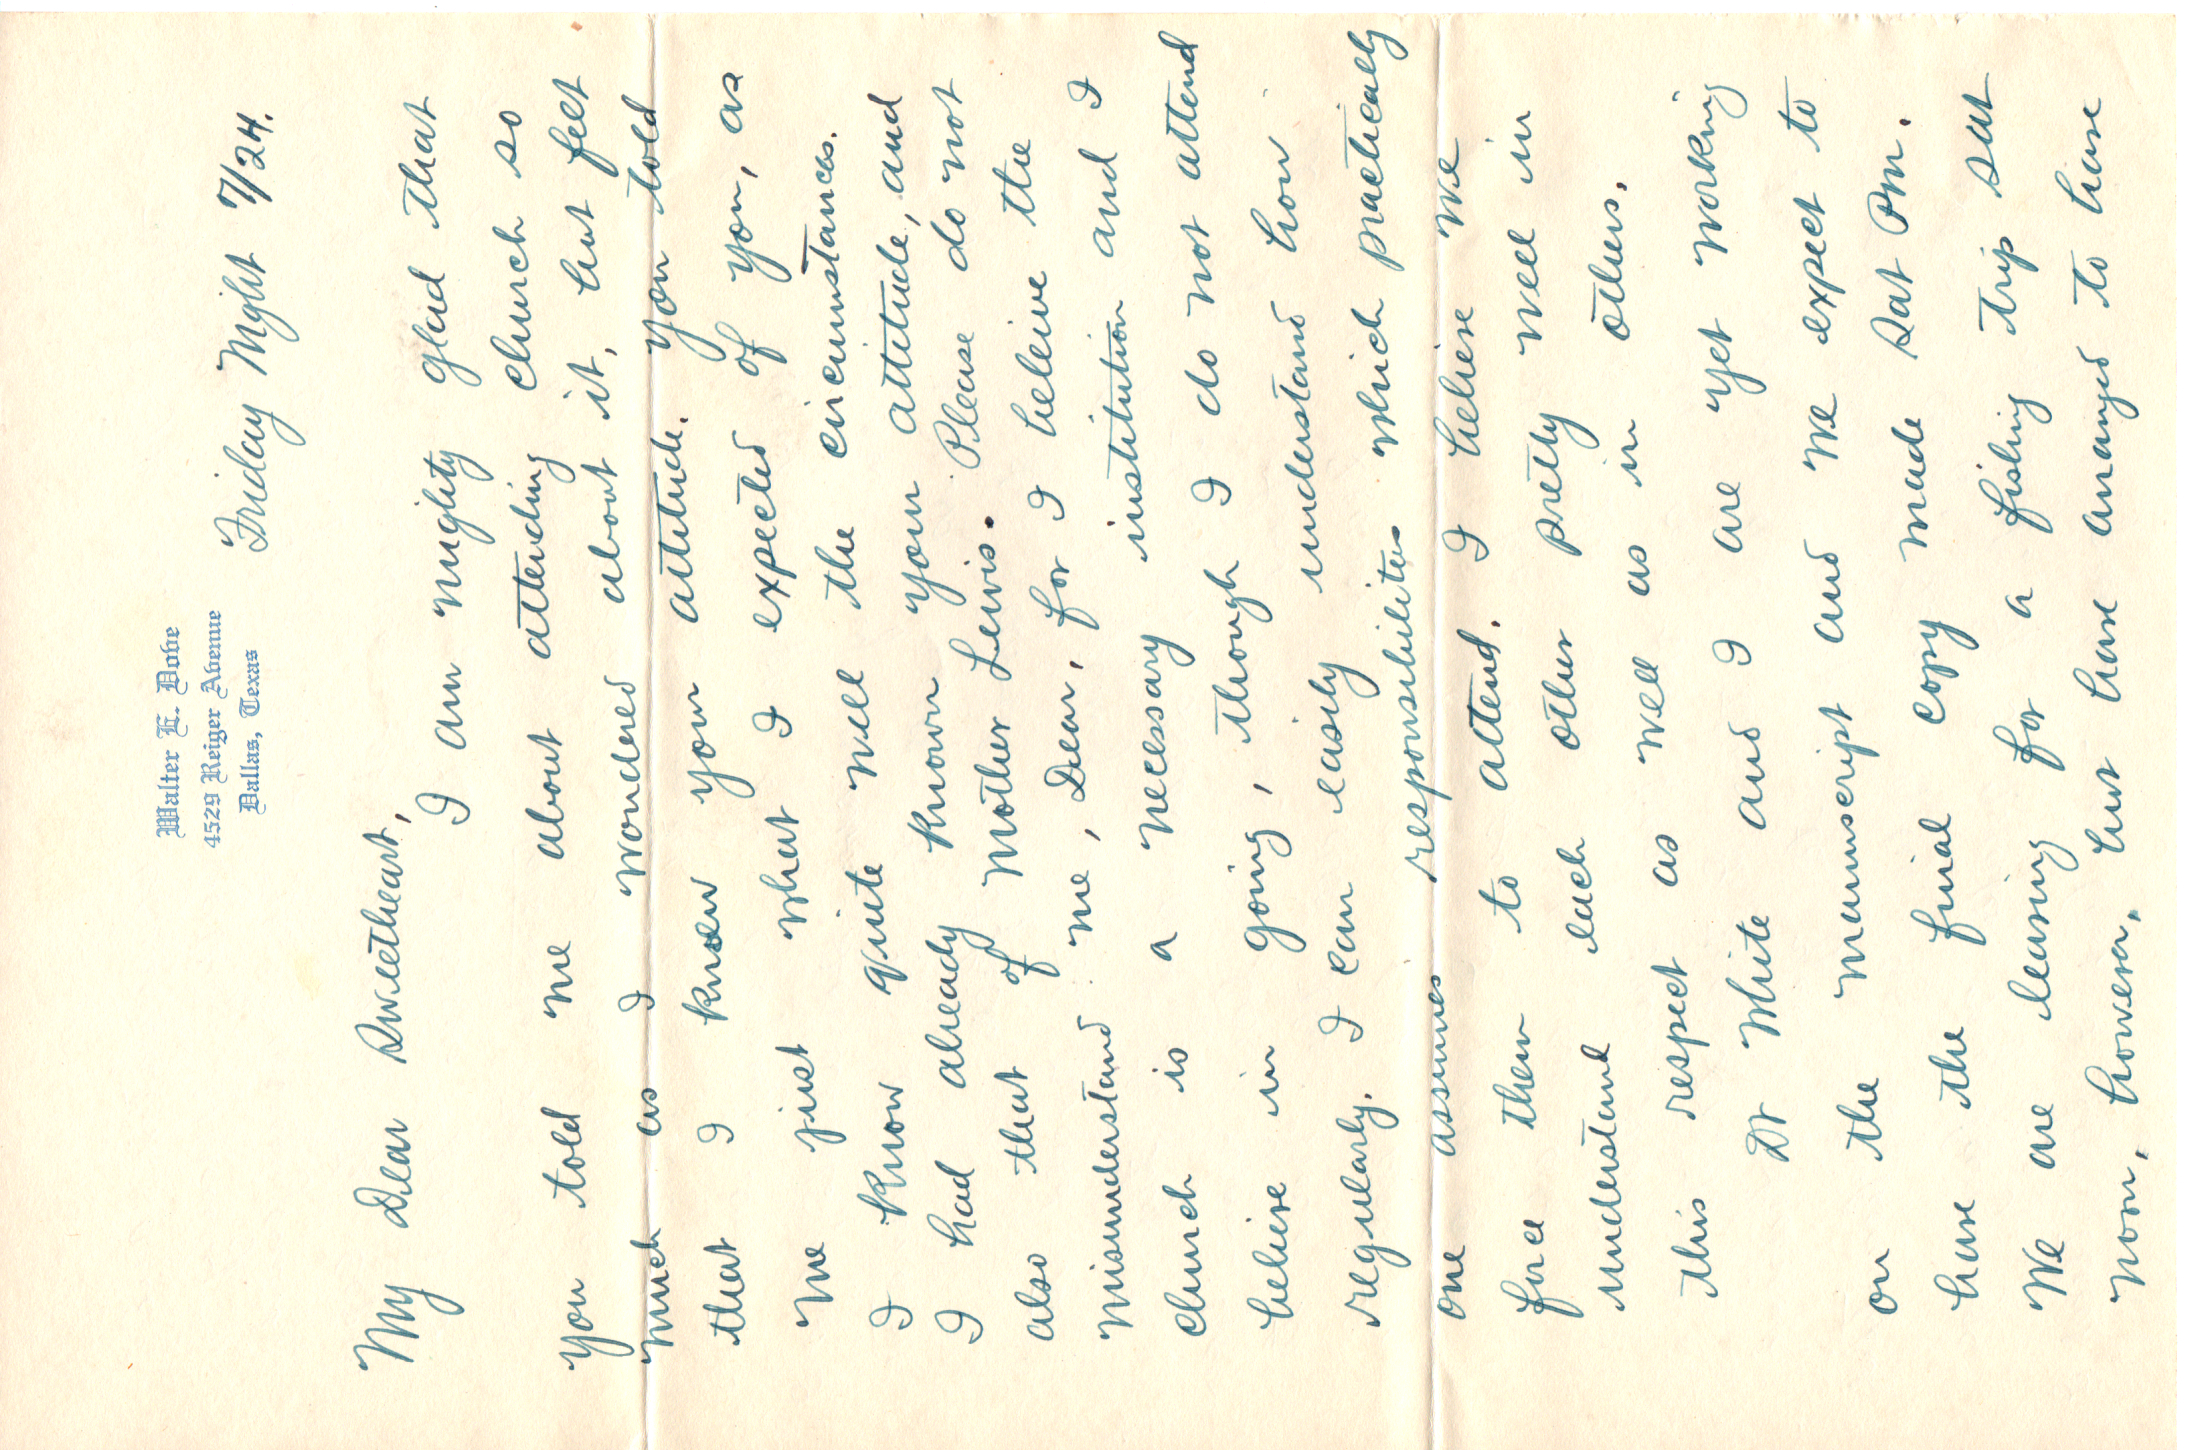 Walter E. Dove
4529 Reiger Avenue
Dallas, Texas
Friday Night 7/24.
My Dear Sweetheart,
I am mighty glad that
you told me about attending church so
much as I wondered about it, but felt
that I knew your attitude. You told
me just what I expected of you, as
I know quite well the circumstances.
I had already known your attitude, and
also that of Mother Lewis. Please do not
misunderstand me, Dear, for I beleive the
church is a necessary institution and I
believe in going, though I do not attend
regularly. I can easily understand how
one assumes responsibilites which practically
force them to attend. I believe we
understand each other pretty well in
this respect as well as in others.
Dr White and I are yet working
on the manuscript and we expect to
have the final copy made Sat Pm.
We are leaving for a fishing trip Sat
nom, however, but have arranged to have